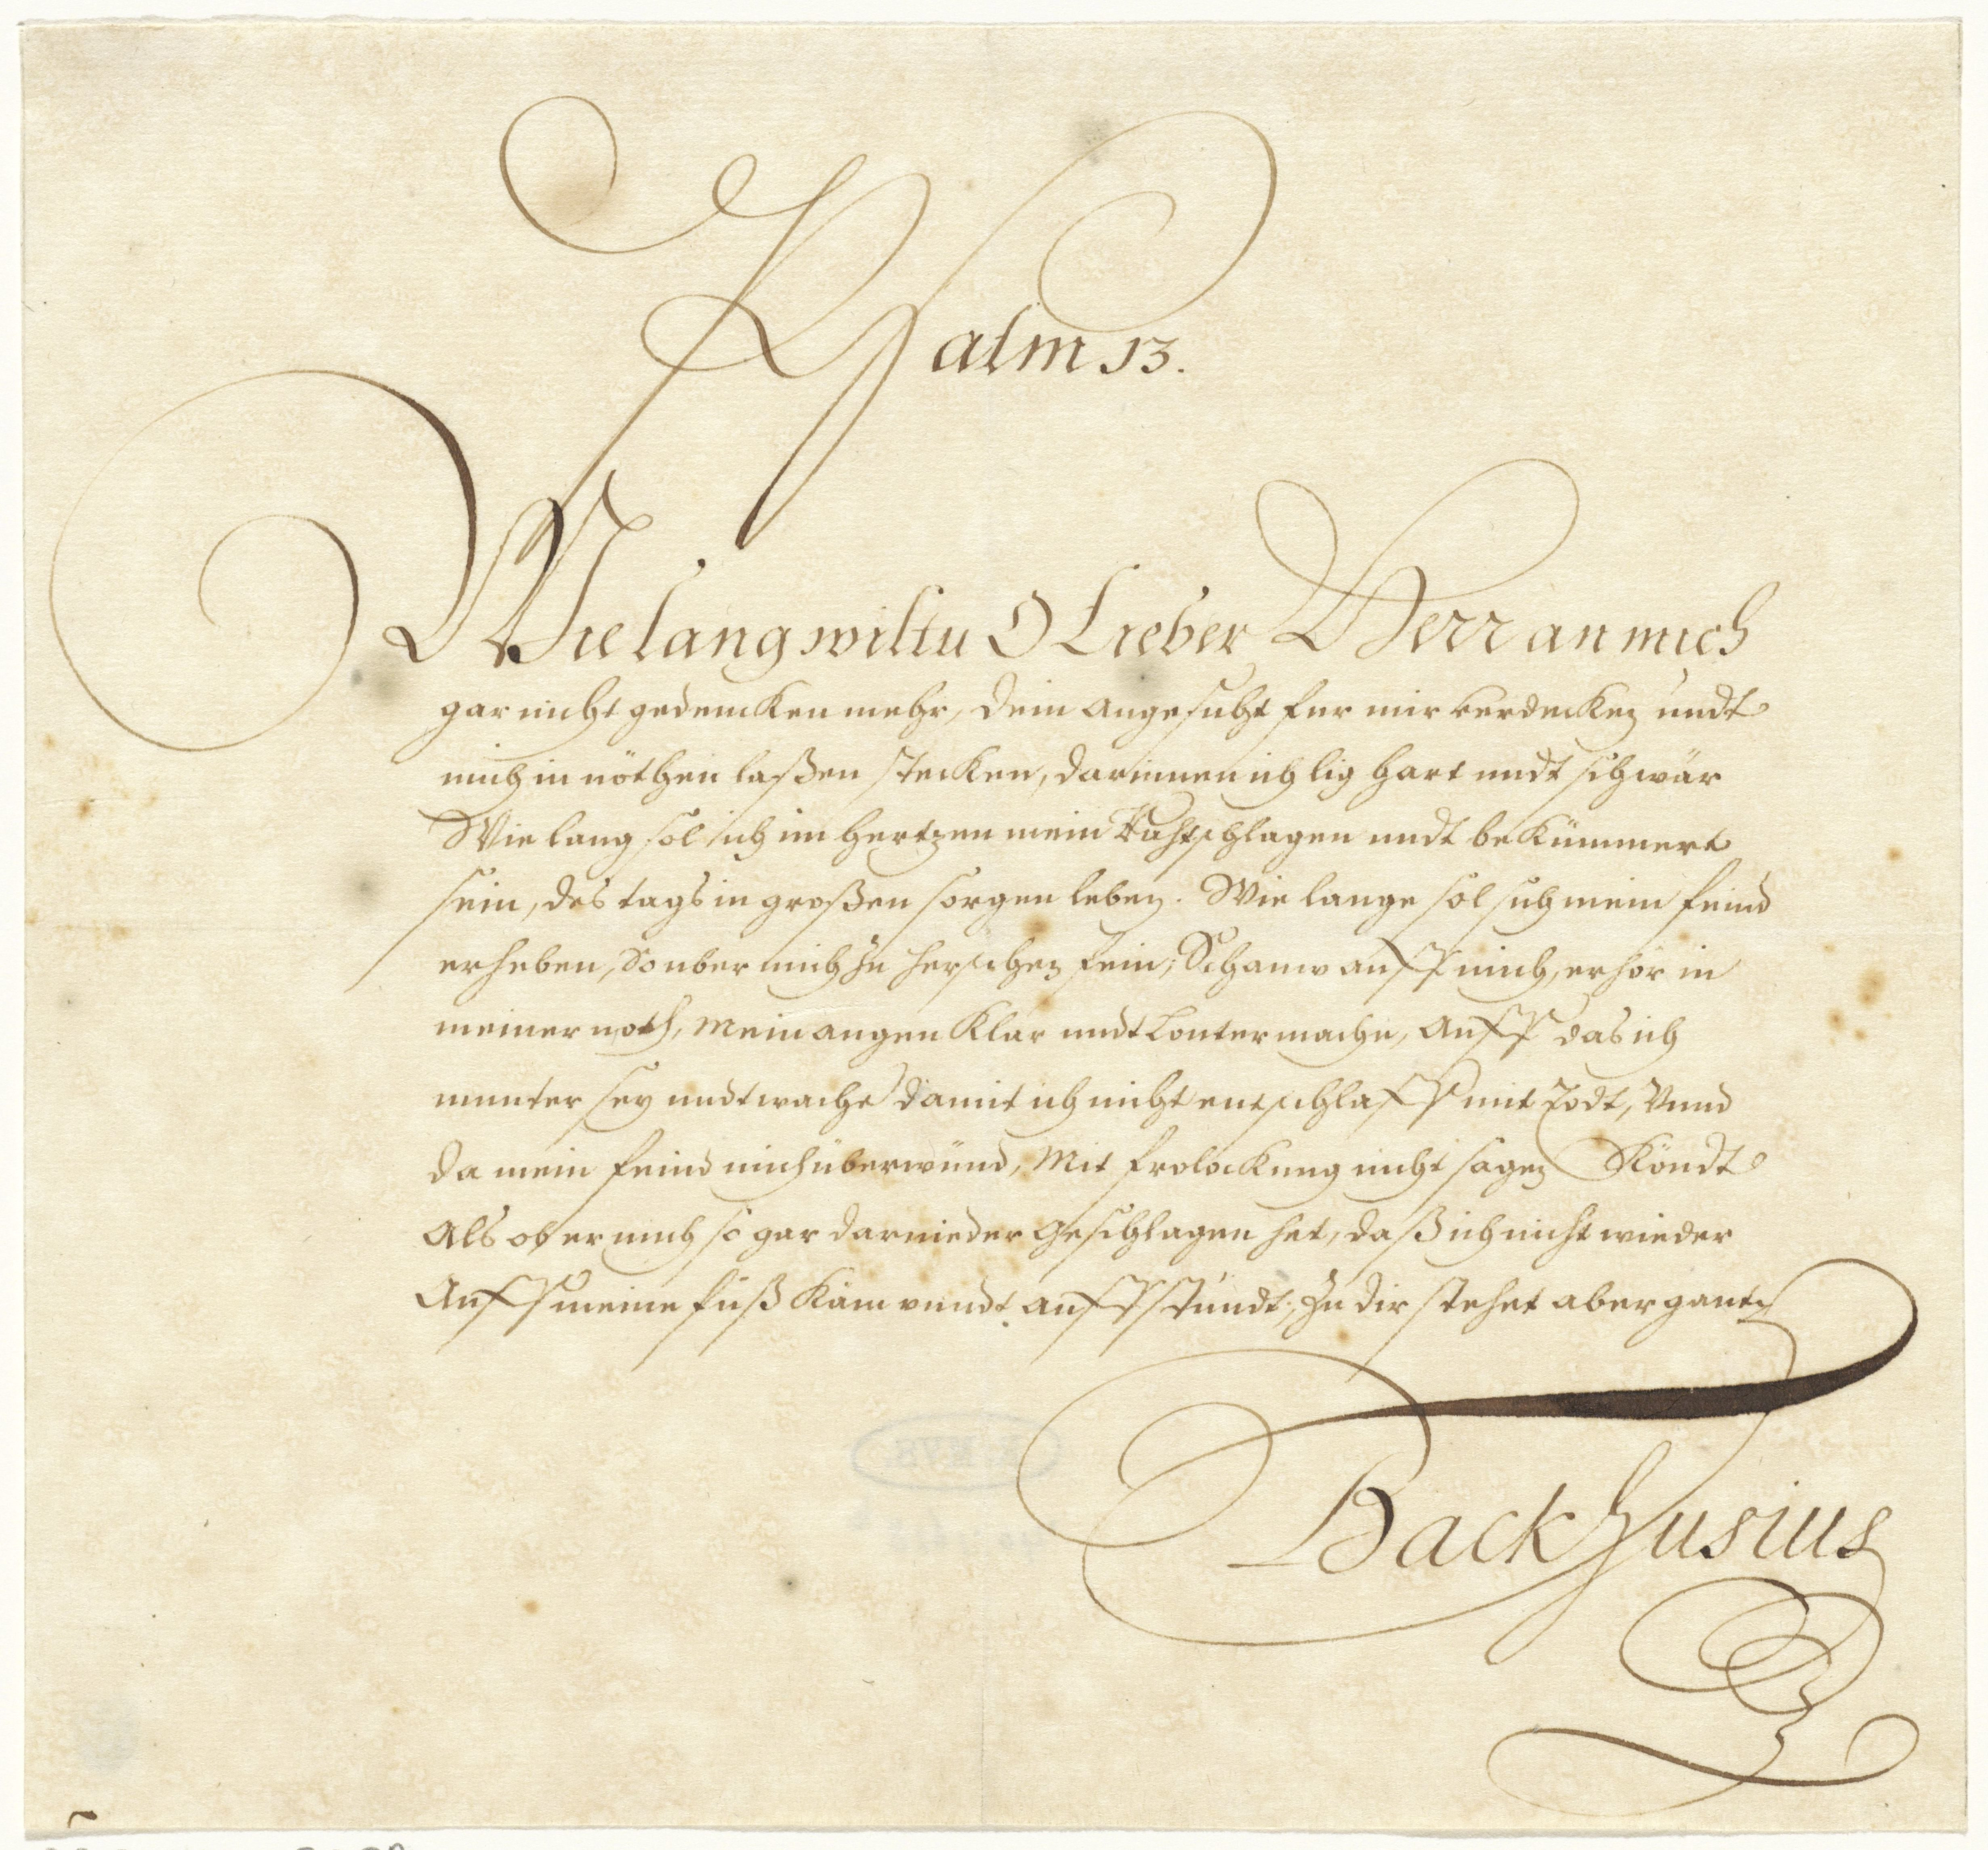 Psalm 13.
Wie lang wiltu O Lieber Herr an mich
gar nicht gedencken mehr, dein angesicht fur mir verdecken undt
mich in nöthen laßen stecken, darinnen ich lig hart undt schwär
Wie lang sol ich im hertzen mein Rahtschlagen undt bekümmert
sein, des tags in großen sorgen leben. Wie lange sol sich mein feind
erheben, So uber mich zu herschen fein; Schauw auff mich, erhör in
meiner noth, Mein augen klar undt Louter mache, Auff das ich
munter sey undt wache damit ich nicht entschlaff mit Todt, Vnnd
da mein feind mich überwünd, Mit frolockung nicht sagen Köndt
Als ob er mich so gar darnieder geschlagen het, daß ich nicht wieder
Auff meine füß Käm vnndt auffstündt; Zu dir stehet aber gantz
Backhusius